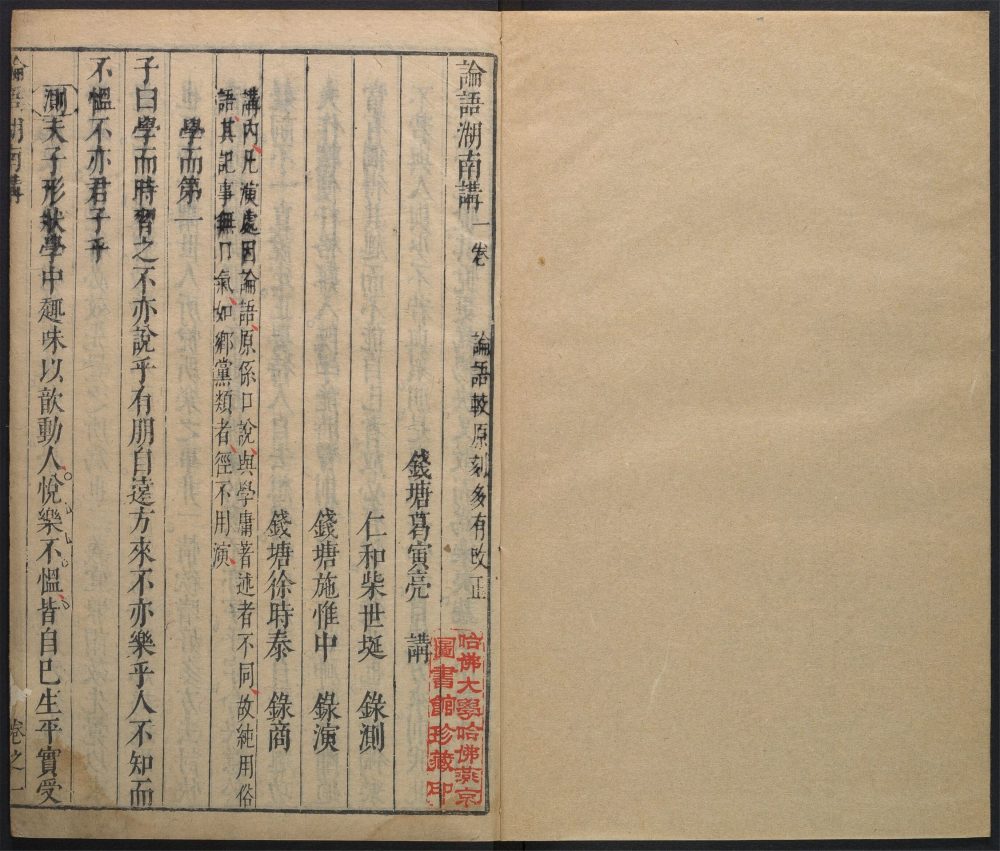 論語湖南講一卷 論語較原刻多有改正
錢塘葛寅亮 講
仁和柴世埏 錄測
錢塘施惟中 錄演
錢塘徐時泰 錄商
講內凡演處因論語原係口說與學庸著述者不同故純用俗
語其記事無口氣如鄉黨類者徑不用演
學而第一
子曰學而時習之不亦說乎有朋自遠方來不亦樂乎人不知而
不慍不亦君子乎
測夫子形狀學中趣味以歆動人悅樂不慍皆自己生平實受
論語湖南講 卷之一
哈佛大學哈佛燕京
圖書館珍藏印